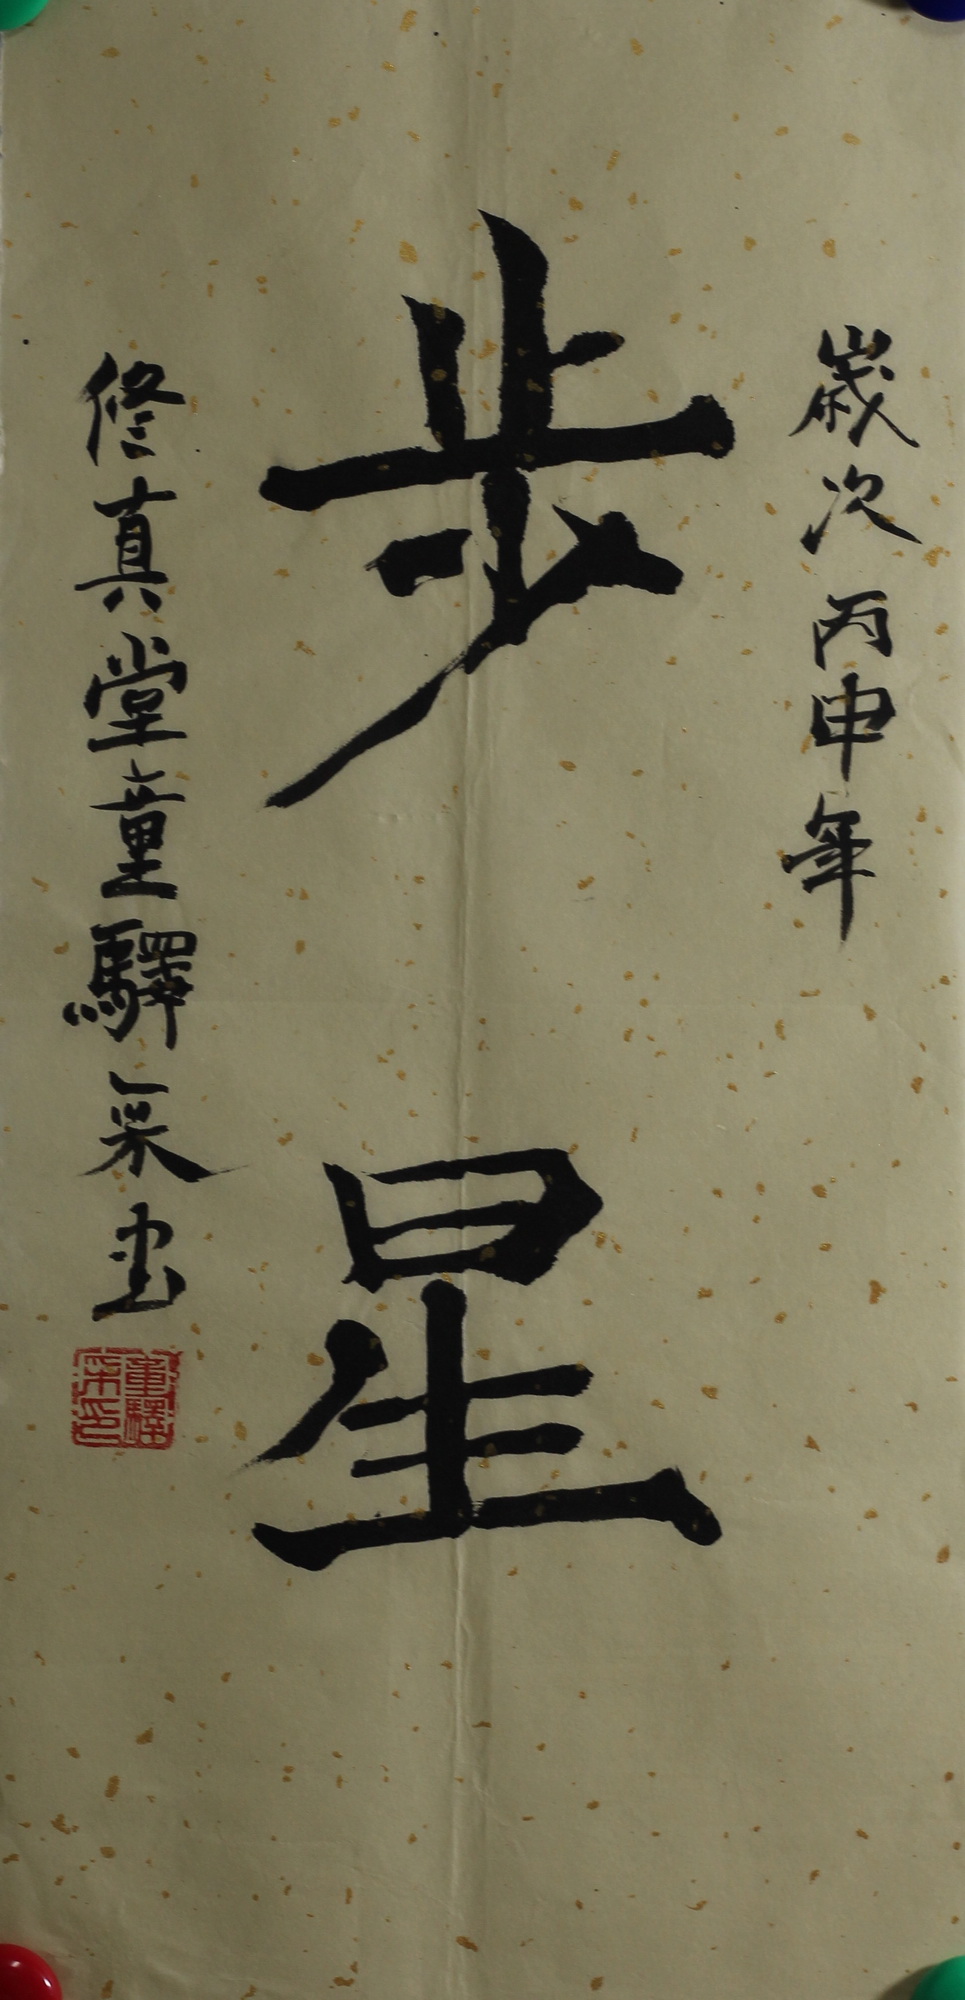 歲次丙申年
步星
修真堂童驛采书
童驛采印